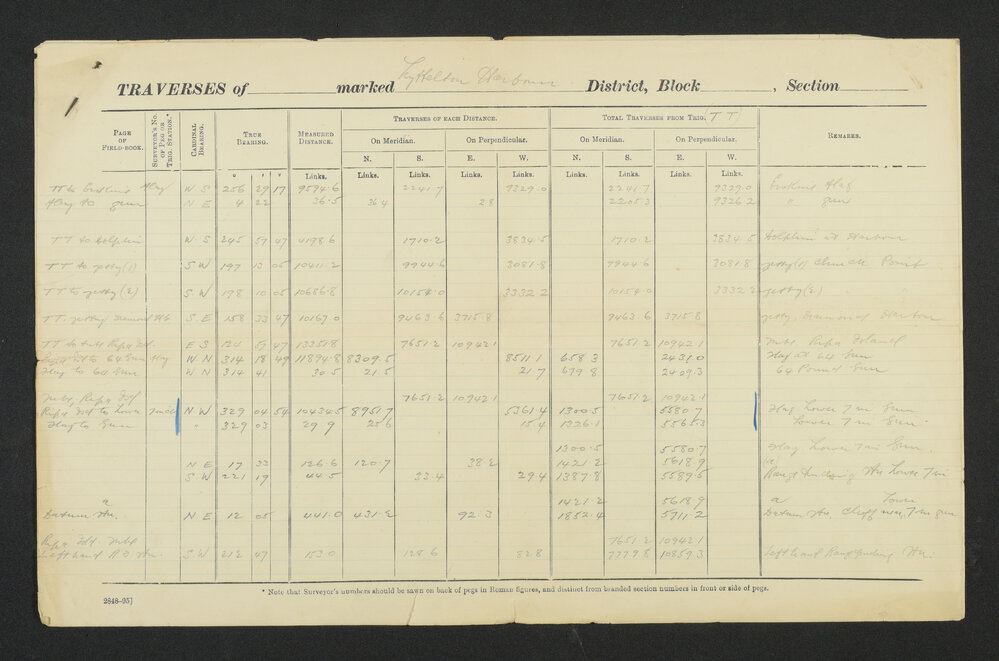 TRAVERSES of marked Lyttelton Harbour District, Block , Section
TRAVERSES OF EACH DISTANCE. TOTAL TRAVERSES FROM TRIG. TT
PAGE OF FIELD-BOOK. SURVEYOR'S NO. OF PEG OR TRIG. STATION.* CARDINAL BEARING. TRUE BEARING. MEASURED DISTANCE. On Meridian. On Perpendicular. On Meridian. On Perpendicular. REMARKS.
N. S. E. W. N. S. E. W.
° ′ ″ Links. Links. Links. Links. Links. Links. Links. Links. Links.
TT to Erskine Flag W S 256 29 17 9594.6 2241.7 9329.0 2241.7 9329.0 Erskine Flag
Flag to gun N E 4 22 36.5 36.4 2.8 2205.3 9326.2 " gun
TT to Dolphin W S 245 57 47 4198.6 1710.2 3834.5 1710.2 3834.5 Dolphin at Harbour
TT to jetty (1) S W 197 13 05 10411.2 9944.6 3081.8 9944.6 3081.8 jetty (1) Point
TT to jetty (2) S W 198 10 05 10686.8 10154.0 3332.2 10154.0 3332.2 jetty (2) "
TT. jetty Diamond Hb S E 158 33 47 10167.0 9463.6 3715.8 9463.6 3715.8 jetty, Diamond Harbour
TT to Ripa Isl. E S 124 57 47 13351.8 7651.2 10942.1 7651.2 10942.1 Ripa Island
to 64 Gun Flag W N 314 18 49 11894.8 8309.5 8511.1 658.3 2431.0 Flag at 64 Gun
Flag to 64 Gun W N 314 41 30.5 21.5 21.7 679.8 2409.3 64 Pound Gun
Ripa Isl 7651.2 10942.1 7651.2 10942.1
Ripa Isl to Lower 7 inch N W 329 04 54 10434.5 8951.7 5361.4 1300.5 5580.7 Flag Lower 7 in Gun
Flag to Gun " 329 03 29.9 25.6 15.4 1326.1 5565.3 Lower 7 in Gun
1300.5 5580.7 Flag Lower 7 in Gun
N E 17 33 126.6 120.7 38.2 1421.2 5618.9 (a)
S W 221 19 44.5 33.4 29.4 1387.8 5589.5 Range finding Stn Lower 7 in
a 1421.2 5618.9 a Lower
Datum Stn. N E 12 05 441.0 431.2 92.3 1852.4 5711.2 Datum Stn. Cliff near 7 in gun
Ripa Isl. 7651.2 10942.1
Left hand R.F. Stn. S W 212 47 153.0 128.6 82.8 7779.8 10859.3 Left hand Rangefinding Stn.
* Note that Surveyor's numbers should be sawn on back of pegs in Roman figures, and distinct from branded section numbers in front or side of pegs.
2848-95]